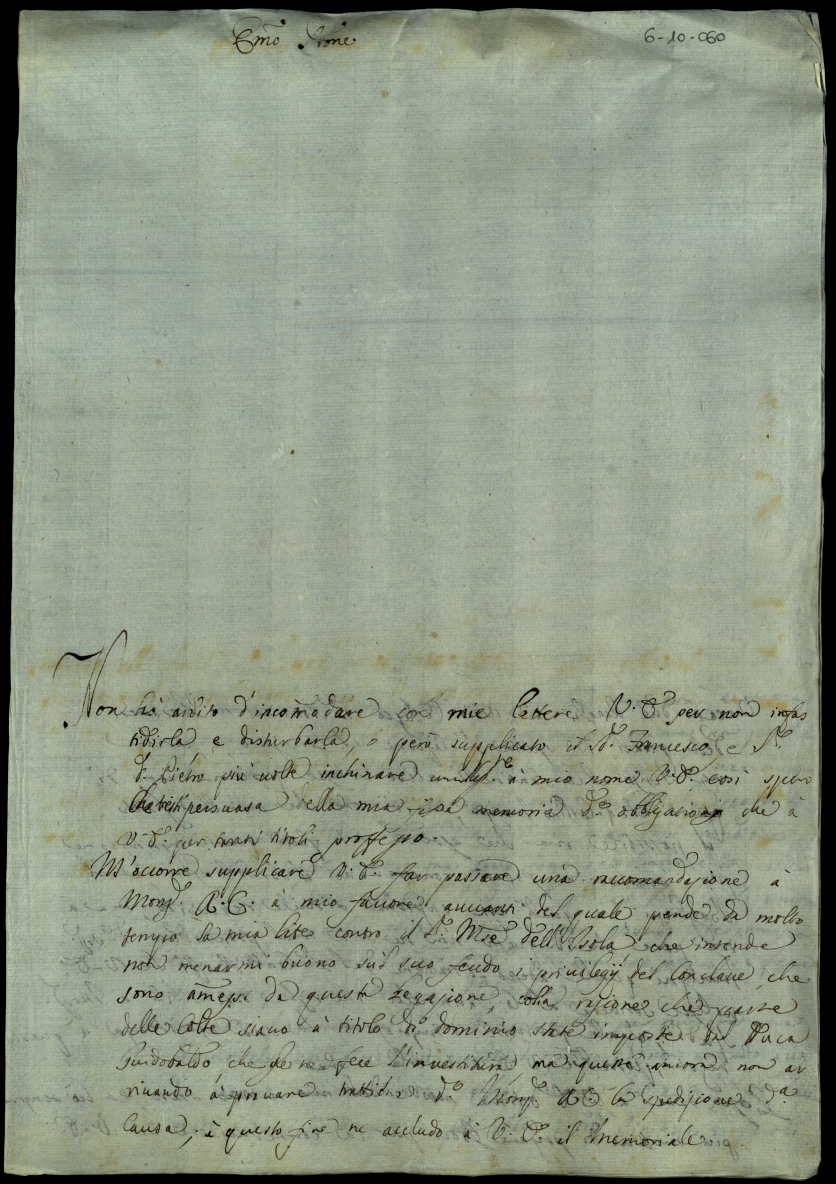 Em̃o Prone
6-10-060
Non hò ardito d'incomodare con mie lettere V. E. per non infas
tidirla e disturbarla, ò però supplicato il Sr. Francesco, e Sr.
D. Pietro più volte inchinare à mio nome V. E. così spero
persuasa della mia memoria obbligazioni che à
V. E. per tanti titoli proffesso.
M'occorre supplicare V. E. far passare una raccomandazione à
Monsr. A. C. à mio favore avvanti del quale pende da molto
tempo la mia lite contro il Sr. Mse. dell'Isola che intende
non menarmi buono sul suo feudo i privilegij del Conclave, che
sono amessi da questa Legazione, colla ragione, che parte
delle Colte siano à titolo di dominio state imposte dal Duca
Guidobaldo, che gle ne fece l'investitura, ma questo ancora non ar
rivando à provare Monsr. A. C. la spedizione da.
Causa, à questo fine ne accludo à V. E. il Memoriale.